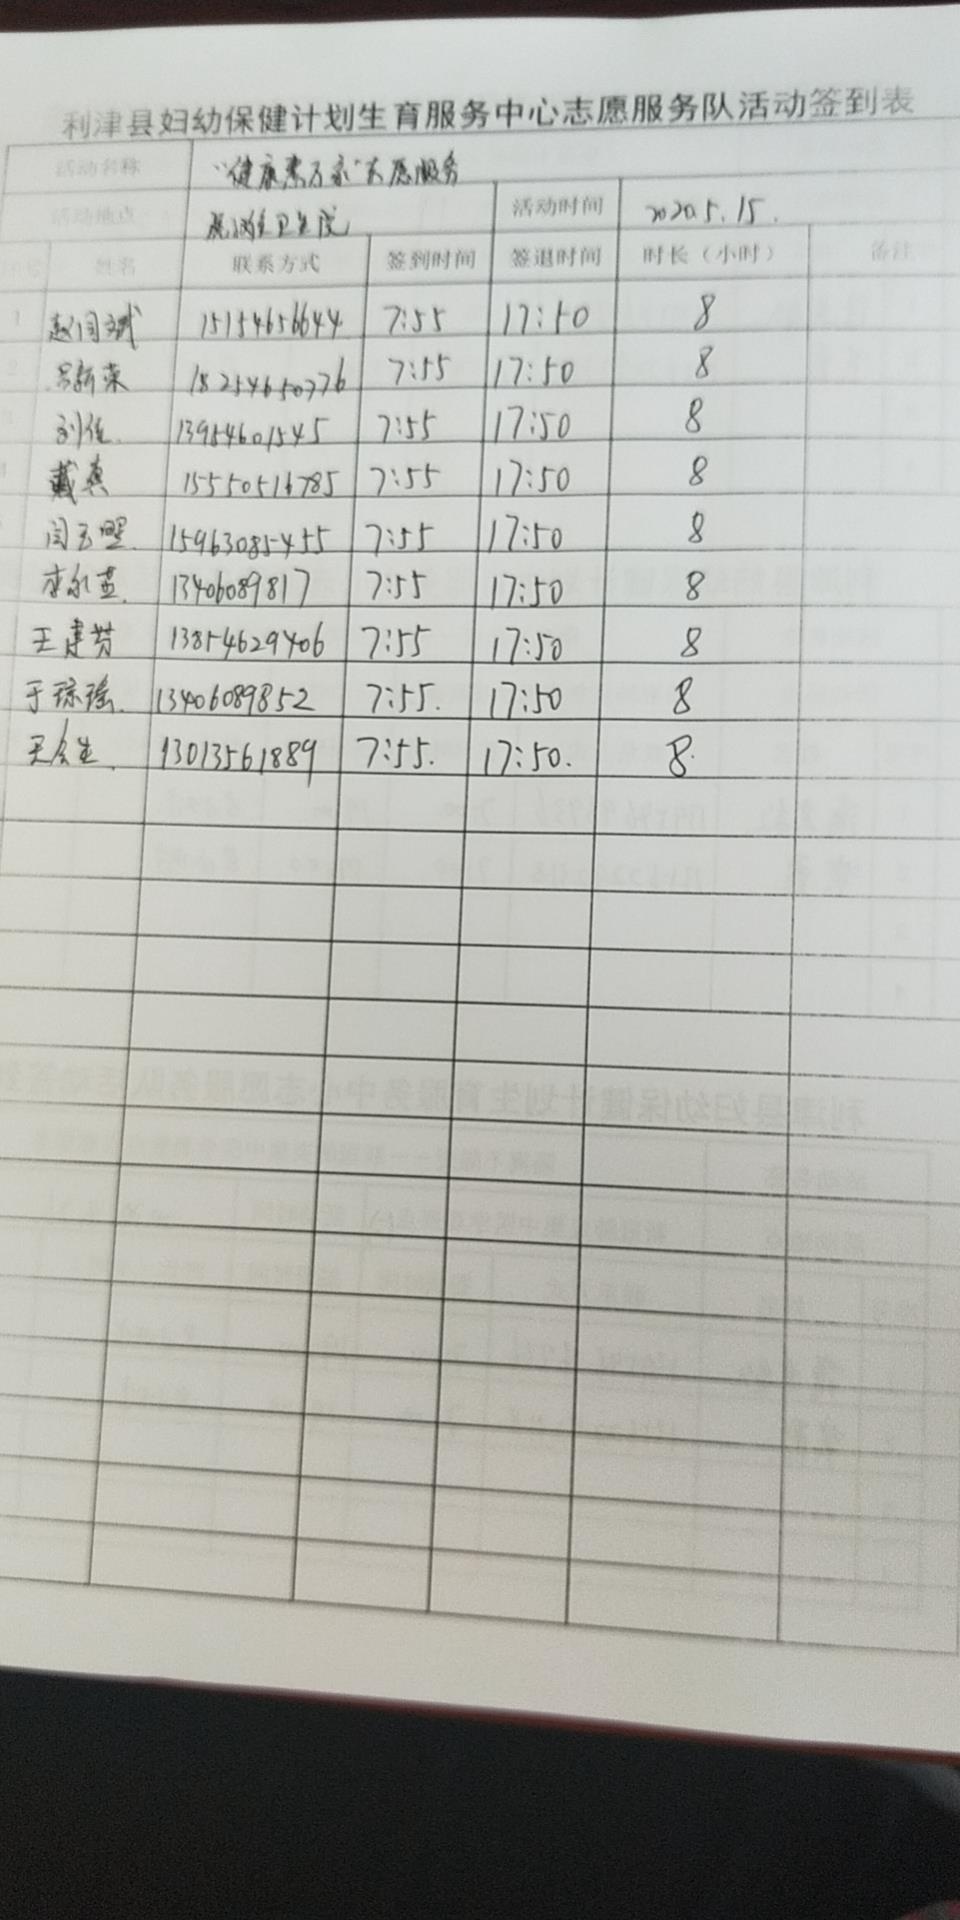 利津县妇幼保健计划生育服务中心志愿服务队活动签到表
活动名称 "健康惠万家"志愿服务
活动地点 卫生院 活动时间 2020.5.15.
姓名 联系方式 签到时间 签退时间 时长（小时） 备注
1 赵闫斌 15154656644 7:55 17:50 8
2 吕新荣 18254650776 7:55 17:50 8
刘佳 13954601545 7:55 17:50 8
戴真 15550516785 7:55 17:50 8
闫玉 15963085455 7:55 17:50 8
李永英 13406089817 7:55 17:50 8
王建芳 13854629406 7:55 17:50 8
于琼瑶 13406089852 7:55 17:50 8
王会生 13013561889 7:55 17:50 8